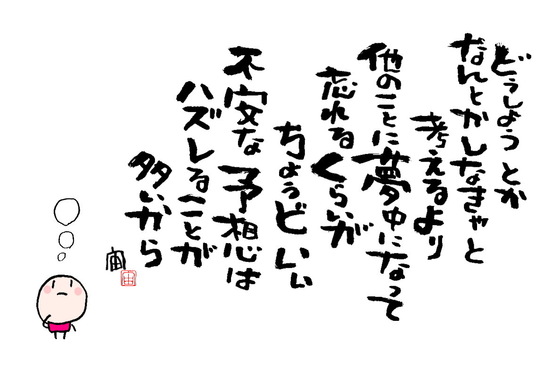 どうしようとか
なんとかしなきゃと
考えるより
他のことに夢中になって
忘れるくらいが
ちょうどいい
不安な予想は
ハズレることが
多いから
宙